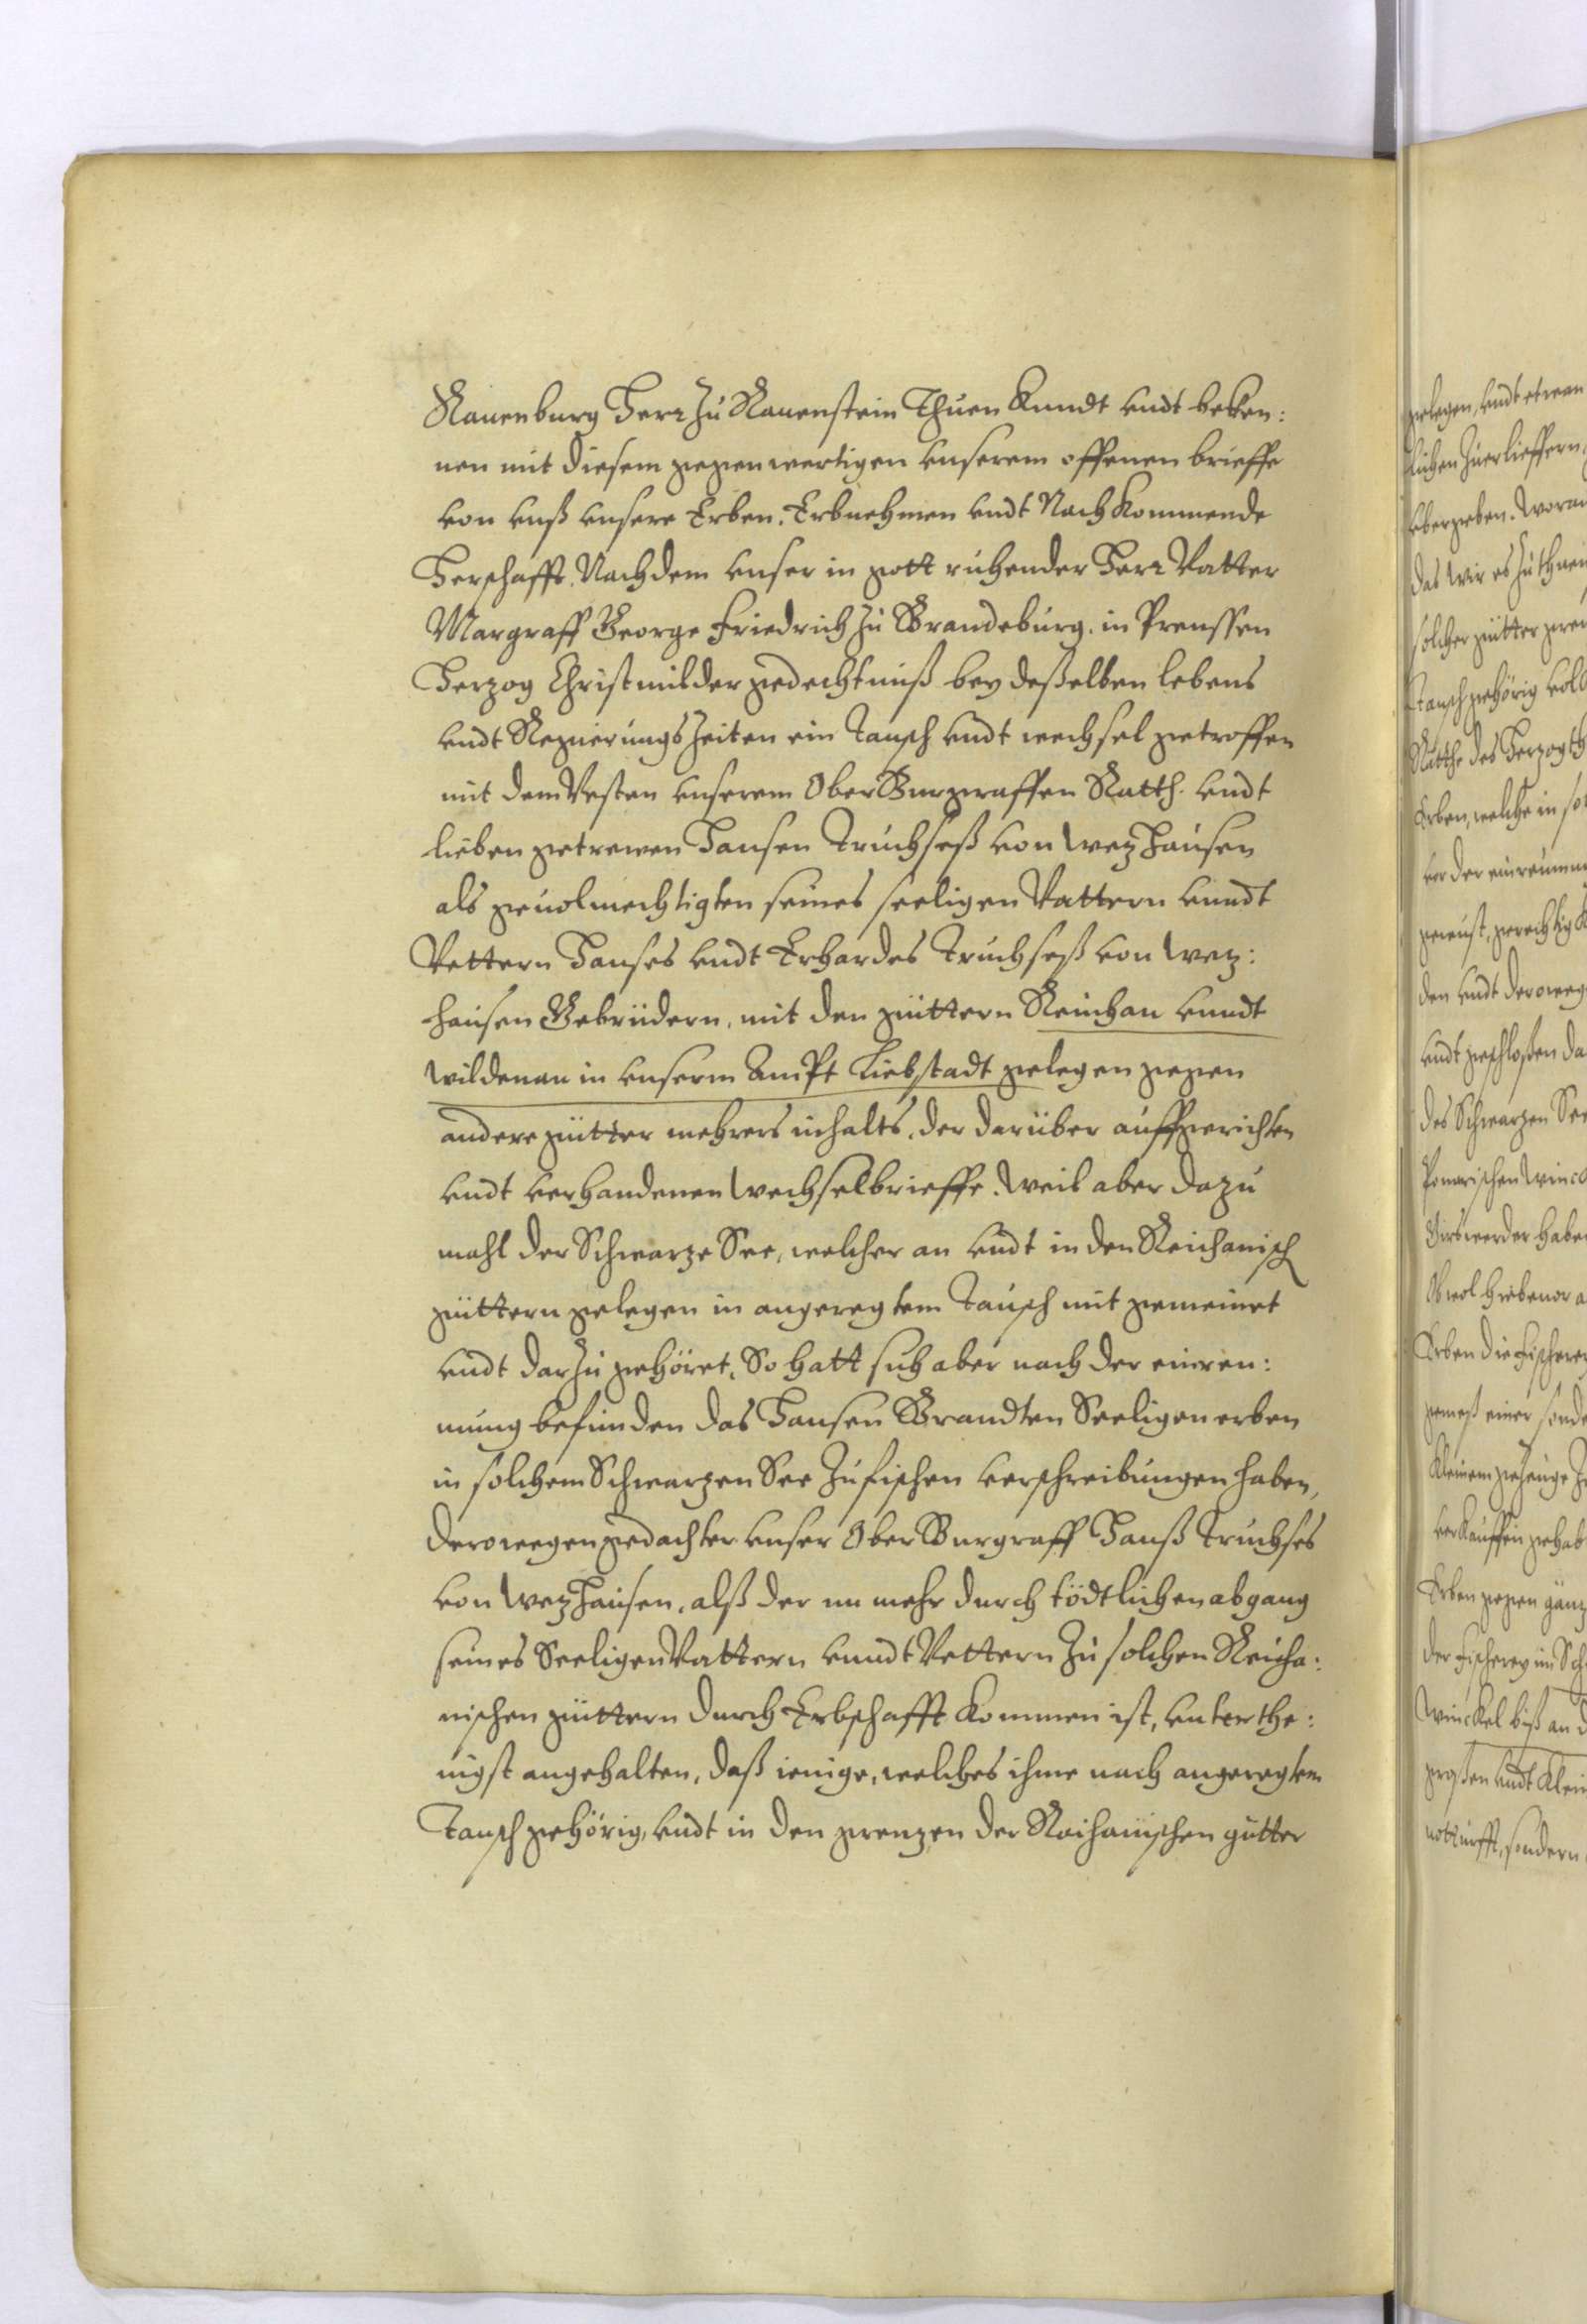 Rauenburg Herr zu Rauenstein Thuen Kundt vndt beken:
nen mit diesem gegenwertigen vnserem offenen brieffe
von vnß vnsere Erben, Erbnehmen vndt Nachkommende
Herschafft, Nachdem vnser in gott ruhender Herr Vatter
Margraff George Friedrich zu Brandeburg, in Preussen
Herzog Christmilder gedechtniß bey deßelben lebens
vndt Regierungs Zeiten ein Tausch vndt wechsel getroffen
mit dem Vesten vnserem Ober Burggraffen Rath. vndt
lieben getrewen Hansen Truchseß von Wetzhausen
als geuolmechtigten seines seeligen Vattern vnndt
Vettern Hanses vndt Erhardes Truchseß von Wetz:
hausen Gebrüdern, mit den güttern Reichau vnndt
Wildenau in vnserm Ampt Liebstadt gelegen gegen
andere gütter mehrers inhalts, der darüber auffgerichten
vndt verhandenen Wechselbrieffe. Weil aber dazu
mahl der Schwarze See, welcher an vndt in den Reichauisch
güttern gelegen in angeregtem Tausch mit gemeinet
vndt darzu gehöret, So hatt sich aber nach der einreu:
mung befunden das Hansen Brandten Seeligen erben
in solchem Schwarzen See zufischen verschreibungen haben,
derowegen gedachter vnser Ober Burgraff Hanß Truchses
von Wetzhausen, alß der nu mehr durch tödtlichen abgang
seines Seeligen Vattern vnndt Vettern zu solchen Reicha:
uischen güttern durch Erbschafft kommen ist, vnterthe:
nigst angehalten, daß ienige, welches ihme nach angeregtem
Tausch gehörig, vndt in den grenzen der Reichauischen gütter
gelegen, vndt etwan
lichen zuerlieffern,
vbergeben. Woran
das wir es zu thuen
solcher gütter
Tausch gehörig
des Herzogth
Erben, welche in
vor der einreumu
den vndt deroweg
vndt geschloßen da
des Schwarzen See
werder habe
Erben die Fischerey
gemeß einer sonde
Kleinem gezeuge
verkauffen gehab
Erben gegen gänz
der Fischerey im Sch
Winckel biß an d
großen vndt Klein
notturfft, sondern